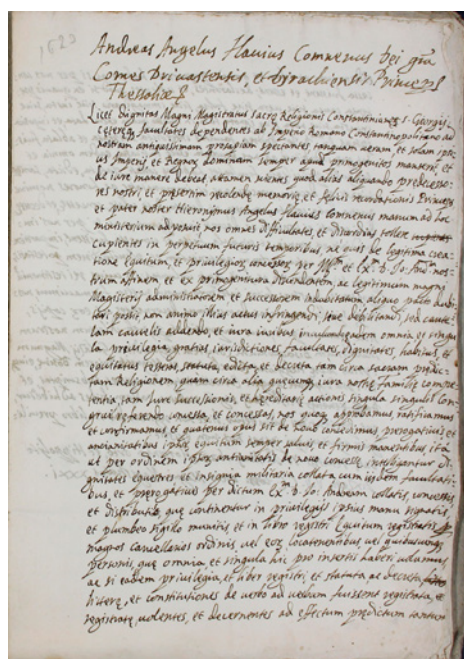 1623
Andreas Angelus Flavius Comnenus Dei gra
Comes Drivastensis, et Dyrachiensis Princeps
Thessaliæ &
Licet dignitas Magni Magistratus sacræ Religionis Constantinianæ S. Georgij
cæteræq facultates dependentes ab Imperio Romano Constantinopolitano ad
nostram antiquissimam prosapiam spectantes tanquam veram, et solam
Imperij, et Regnor dominam semper apud primogenitos manserit, et
de iure manere debeat, attamen
res nostri, et præsertim recolendæ memoriæ, et felicis recordationis Princeps
et pater noster Hieronymus Angelus Flavius Comnenus manum ad hoc
ministerium nos omnes difficultates, et discordias tollere
cupientes in perpetuum futuris temporibus, ne quis de legitima crea-
tione Equitum, et privilegior concessor per Ill.m et Ex.m D. Jo: And. nos-
trum affinem, et ex primogenitura ac legitimum magni
Magisterij administratorem, et successorem aliquo pacto dubi-
tari possit non animo illius actus infringendi, sive debilitandi, sed caute-
lam cautelis addendo, et iura iuribus omnia et singu-
la privilegia, gratias, iurisdictiones facultates, dignitates, habitus, et
equitatus statuta, edita, et decreta tam circa sacram prædic-
tam Religionem, quam circa alia quæcunq iura nostræ familiæ compe-
tentia, tam iure successionis, et hereditariæ actionis singula singulis con-
grue referendo concessa, et concessos, nos quoq approbamus ratificamus
et confirmamus, et quatenus opus sit de novo concedimus prerogativis et
antianitatibus ipsor equitum semper salvis, et firmis manentibus ita
ut per ordinem ipsor antianitatis de novo concessæ intelligantur di-
gnitates equestres et insignia militaria collata cum ijsdem facultati-
bus, et prerogativis per dictum Ex.m D. Jo: Andream collatis, concessis
et distributis, quæ continentur in privilegijs ipsius manu signatis,
et plumbeo sigillo munitis, et in libro registri Equitum registratis
magnos cancellarios ordinis, vel eor locotenentibus vel quibuscunq
personis, quæ omnia, et singula hic pro insertis haberi volumus
ac si eadem privilegia, et liber registri, et statuta ac decreta
litteræ, et constitutiones de verbo ad verbum fuissent registrata, et
registratæ, volentes, et decernentes ad effectum prædictum tantum